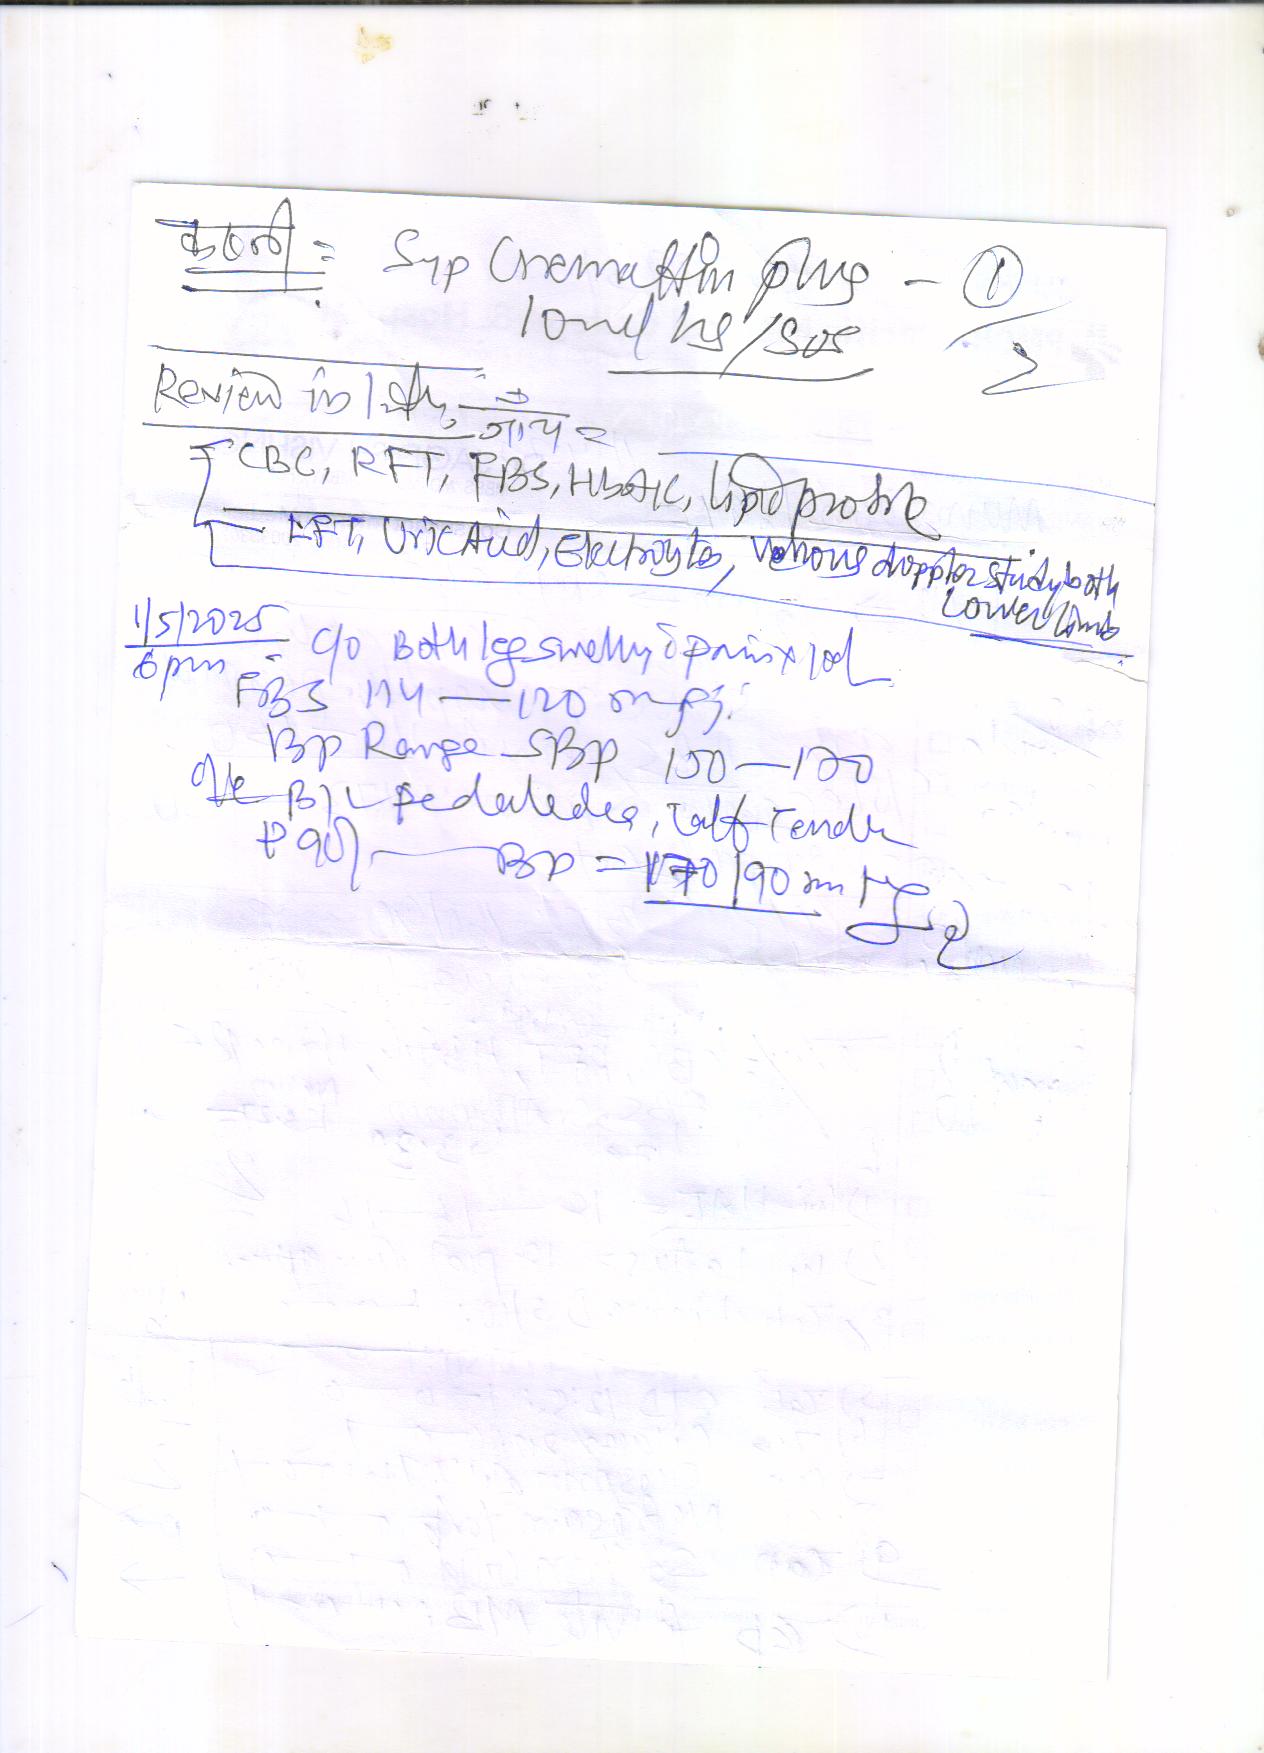 कब्जी = Syp Cremaffin plus - ①
10ml hs/sos 2
Review in
जांच =
CBC, RFT, FBS, HbA1C, Lipid profile
LFT, Uric Acid, Electrolytes, Venous doppler study both
Lower limb
1/5/2025
6 pm c/o Both leg swelling c pain x 10d
FBS 114 — 120 mg%
Bp Range SBp 150 — 170
o/e B/L pedal edea, Calf Tender
P 90/ — Bp = 170/90 mmHg